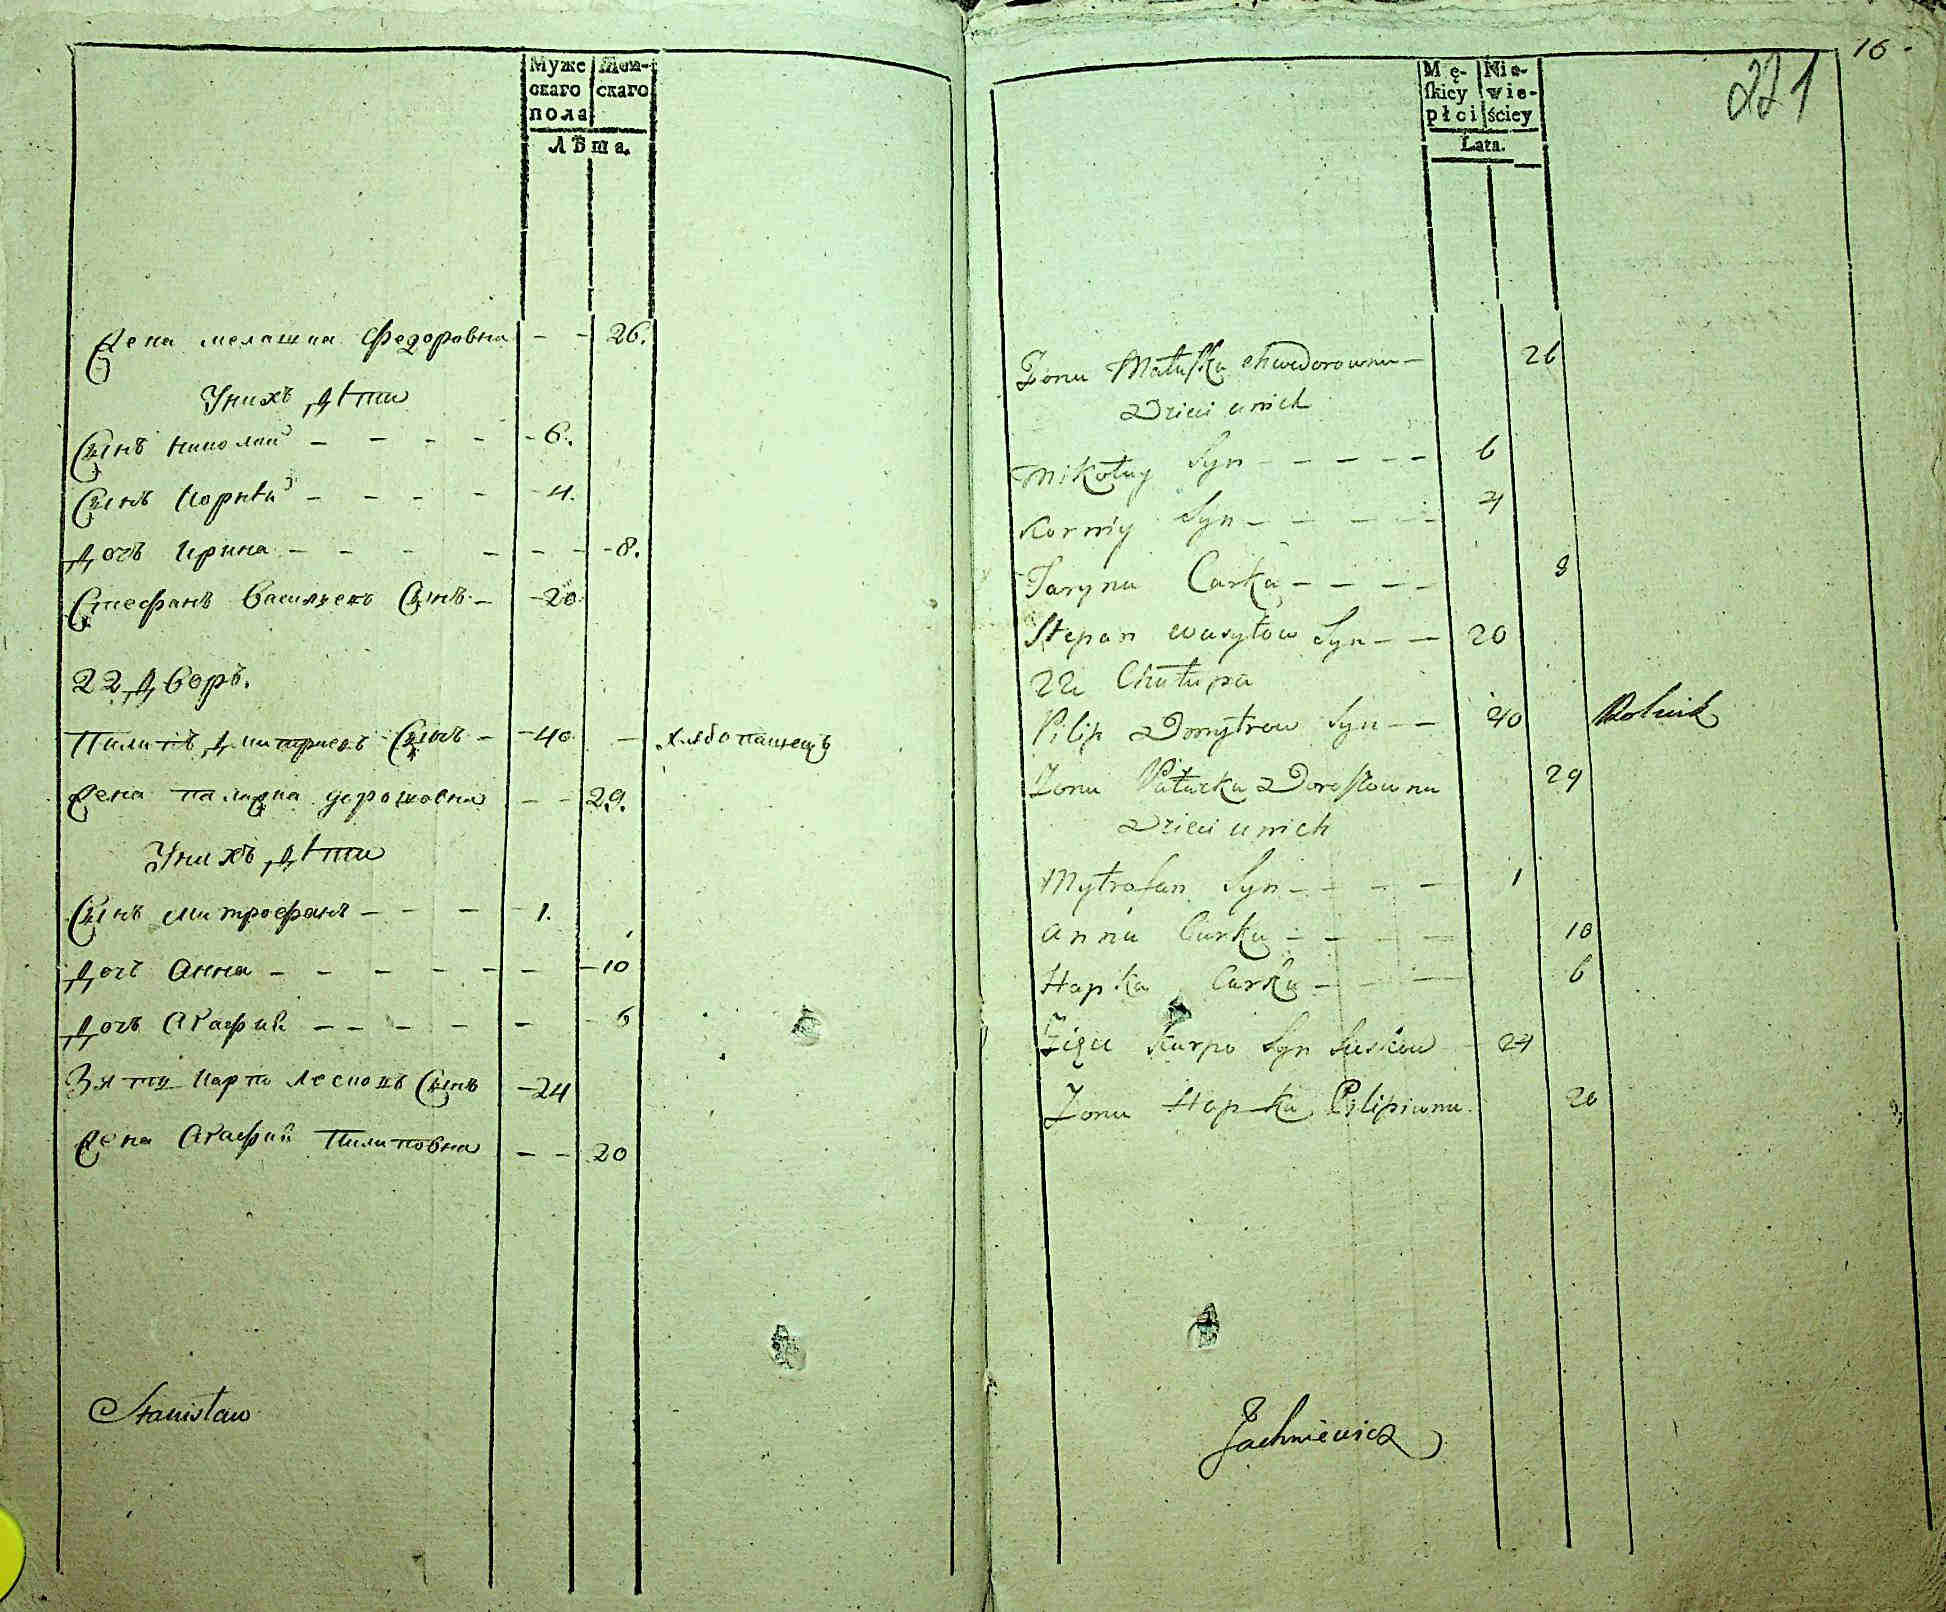 Муже
скаго
пола
Жен-
скаго
Лѣта.
Жена Мелашка Федоровна — — 26.
У нихъ дѣти
Сынъ Николай — — — — 6.
Сынъ Корнѣй — — — — 4.
Дочь Ирина — — — — — — 8.
Стефанъ Васильевъ Сынъ — 20
22 Дворъ.
Пилипъ Дмитриевъ Сынъ — 40 — хлѣбопашецъ
Жена Палажка Дорошовна — — 29.
У нихъ дѣти
Сынъ Митрофанъ — — — 1.
Дочь Анна — — — — — — 10
Дочь Агафия — — — — — 6
Зять Карпо Лесковъ Сынъ — 24
Жена Агафия Пилиповна — — 20
Stanisław
16
221
Mę-
ſkiey
płci
Nie-
wie-
ściey
Lata.
Zona Małaſka Chwedorowna — 26
Dzieci u nich
Mikołay Syn — — — — — 6
Korniy Syn — — — — 4
Jaryna Curka — — — — 8
Stepan Wasylow Syn — — 20
22 Chałupa
Pilip Dmytrow Syn — — 40 Rolnik
Zona Pałaszka Doroſzowna 29
Dzieci u nich
Mytrofan Syn — — — — 1
Anna Curka — — — — 10
Hapka Curka — — — 6
Zięć Karpo Syn Laskow — 24
Zona Hapka Pilipiwna 20
Jachniewicz